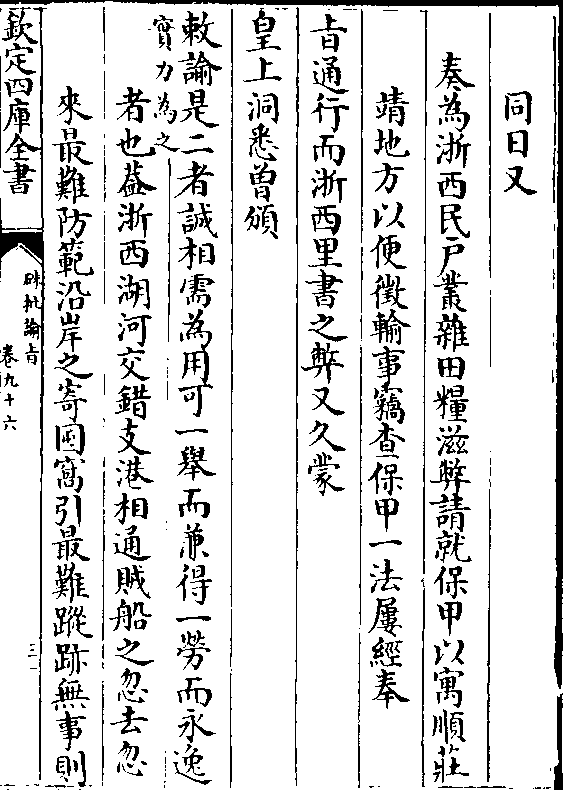 同日又
奏為浙西民戶叢雜田糧滋弊請就保甲以寓順莊
靖地方以便徵輸事竊查保甲一法屢經奉
旨通行而浙西里書之弊又久蒙
皇上洞悉曾頒
敕諭是二者誠相需為用可一舉而兼得一勞而永逸
實力為之
者也葢浙西湖河交錯支港相通賊船之忽去忽
來最難防範沿岸之寄囤窩引最難蹤跡無事則
欽定四庫全書
硃批諭旨
卷九十六
三